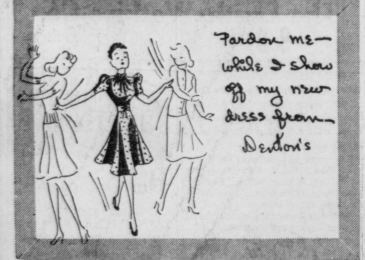 Pardon me—
while I show
off my new
dress from—
Denton's